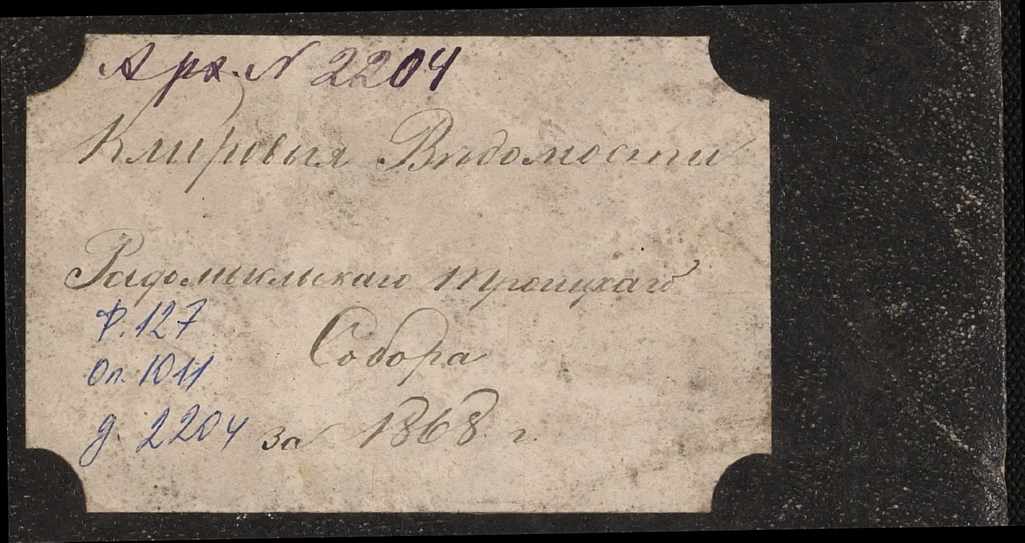 Арх. N 2204
Клировыя Вѣдомости
Радомысльскаго Троицкаго
Ф. 127
Собора
Оп. 1011
д. 2204 за 1868 г.